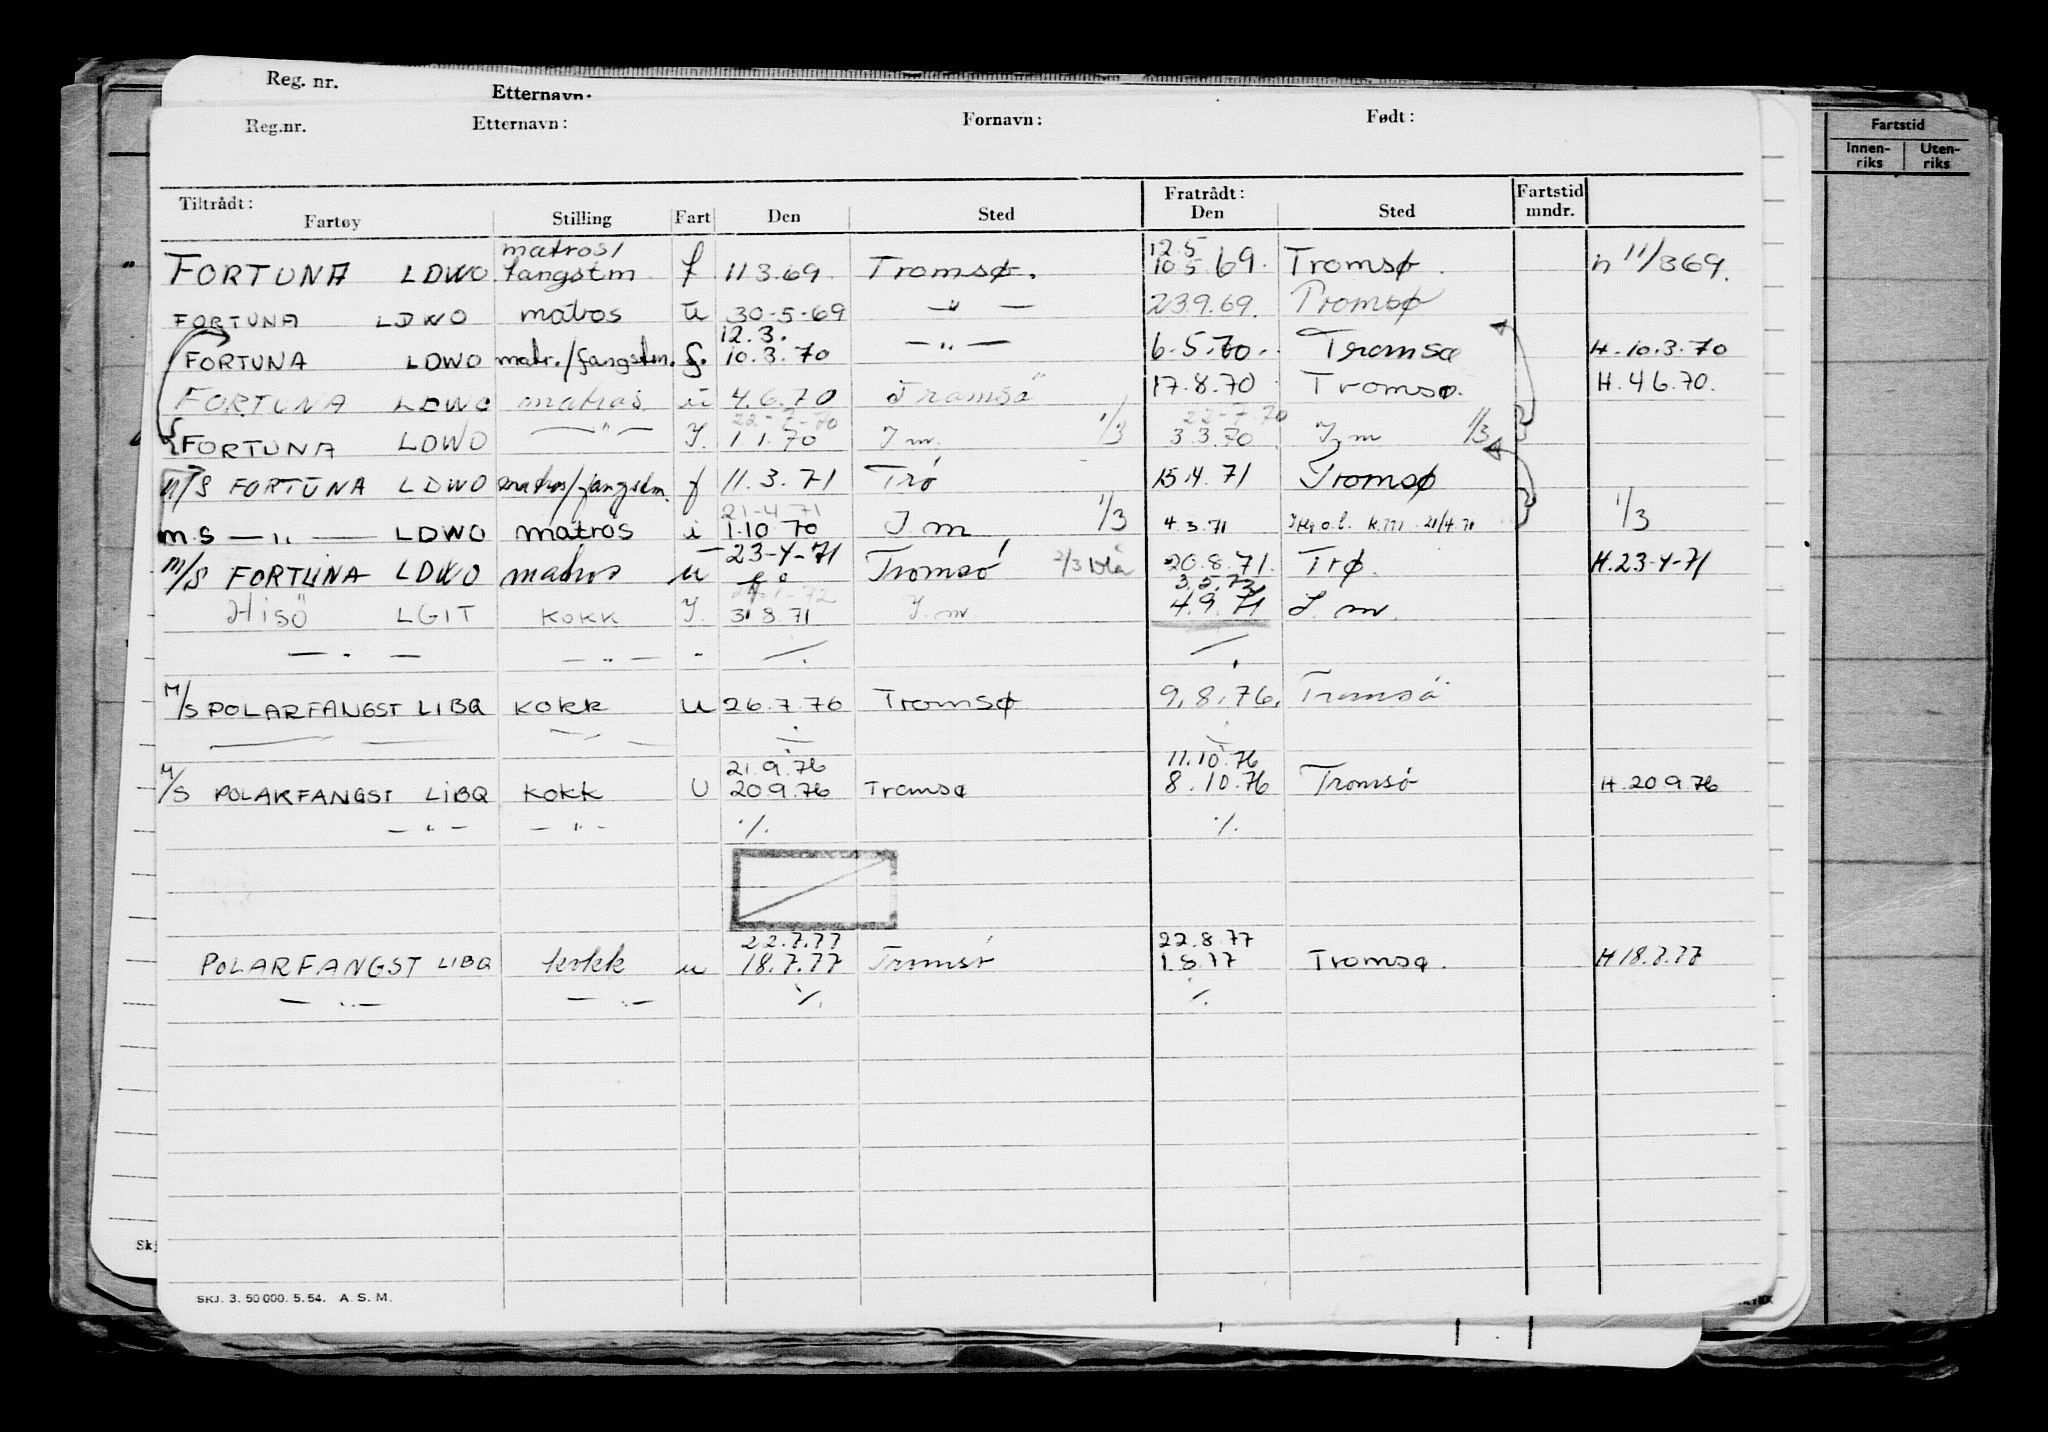 Reg. nr. Etternavn:
Reg.nr. Etternavn: Fornavn: Født:
Fartstid
Innen-riks Uten-riks
Tiltrådt: Fratrådt: Fartstid mndr.
Fartøy Stilling Fart Den Sted Den Sted
matros/ 12.5
" FORTUNA LDWO fangstm f 11 3.69. Tromsø. 10.5.69. Tromsø. h 11/369.
FORTUNA LDWO matros u 30-5-69 — " — 23.9.69. Tromsø
12.3.
FORTUNA LDWO matr./fangstm. f. 10.3.70 — " — 6.5.70. Tromsø H.10.3.70
FORTUNA LDWO matros u 4.6.70 Tromsö 17.8.70 Tromsø. H.4 6.70.
22-7-70 22-7-70
FORTUNA LDWO — " — I. 1.1.70 I m. 1/3 3.3.70 I m 1/3
M/S FORTUNA LDWO matros/fangstm. f 11.3.71 Trø 15.4.71 Tromsø
21-4 71
m.s — " — LDWO matros i 1.10 70 I m 1/3 4.3.71 21/4.71 1/3
M/S FORTUNA LDWO matros u 23-4-71 Tromsø 2/3 blå 20.8.71. Trø. H.23-4-71
3.5.72
Hisö LGIT KOKK I. 31 8.71 I.m. 4.9.71 I.m.
— " — — " — " ./. ./.
M/S POLARFANGST LIBQ KOKK U 26.7.76 Tromsø 9.8.76. Tromsö
21.9.76 11.10.76
M/S POLARFANGST LIBQ KOKK U 20 9.76 Tromsø 8.10.76 Tromsö H.20 9.76
— " — — " — ./. ./.
22.7.77 22.8.77
POLARFANGST LIBQ kokk u 18.7.77 Tromsö 1.8.77 Tromsø. H 18.7.77
— " — — " — ./. ./.
SKJ. 3. 50 000. 5. 54. A. S. M.